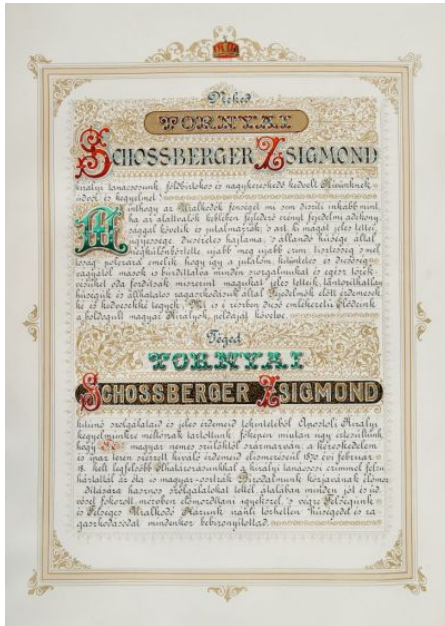 Néked
TORNYAI
SCHOSSBERGER ZSIGMOND
királyi tanácsosunk, földbirtokos és nagykereskedő kedvelt Hivünknek
üdvöt és kegyelmet
Minthogy az Uralkodók fenségét mi sem díszíti inkább mint
ha az alattvalók keblében fejledező erényt fejedelmi adékony
sággal követik és jutalmazzák; s azt, ki magát jeles tettei,
ügyessége, dicséretes hajlama, s állandó hűsége által
megkülönböztette, ujabb meg ujabb czim, tisztesség s mél
tóság polczára emelik, hogy így a jutalom, kitüntetés és dicsőség
vágyától mások is buzdittatva minden szorgalmukat és egész törek-
vésüket oda fordítsák miszerint magukat jeles tetteik, tántoríthatlan
hűségük és állhatatos ragaszkodásuk által Fejedelmök előtt érdemesek
ké és kedvesekké tegyék; Mi is e részben dicső emlékezetű Elődeink
a boldogult magyar Királyok, példáját követve,
Téged
TORNYAI
SCHOSSBERGER ZSIGMOND
kitünő szolgálataid és jeles érdemeid tekintetéből Apostoli Királyi
kegyelmünkre méltónak tartottunk, főképen miután úgy értesültünk
hogy magyar nemes szülőktől származván, a kereskedelem
és ipar terén szerzett kiváló érdemeid elismeréséül 1870. évi február
18. kelt legfelsőbb Elhatározásunkkal a királyi tanácsosi czimmel felru
háztattál, az óta is magyar-osztrák Birodalmunk közjavának előmoz
dítására hasznos szolgálatokat tettél, általában minden jót és üd-
vöset fokozott mérvben előmozdítani igyekeztél, s végre Felségünk
és Felséges Uralkodó Házunk iránti törhetlen hűségedet és ra
gaszkodásodat mindenkor bebizonyítottad.